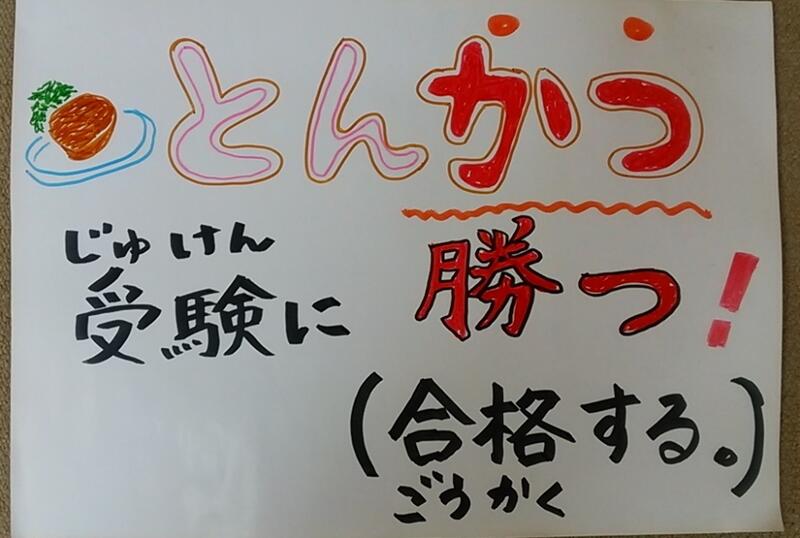 とんかつ
じゅけん
受験に 勝つ!
(合格する。)
ごうかく